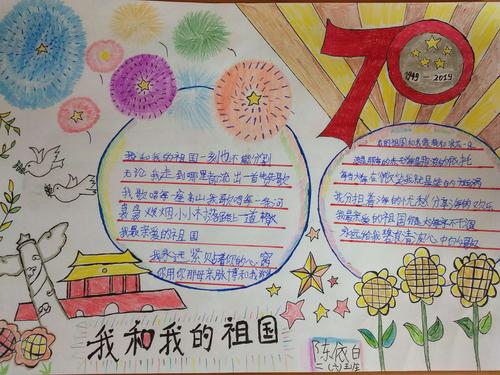 70
1949-2019
我和我的祖国一刻也不能分割
无论我走到哪里都流出一首赞歌
我歌唱每一座高山我歌唱每一条河
袅袅炊烟小小村落路上一道辙
我最亲爱的祖国
我永远紧贴着你的心窝
你用你那母亲脉搏和我
我的祖国和我像海和浪花一朵
浪是那海的赤子海是那浪的依托
每当大海在微笑我就是笑的旋涡
我分担着海的忧愁分享海的欢乐
我最亲爱的祖国你是大海永不干涸
永远给我碧浪清波心中的歌
我和我的祖国
陈依白
二(六)班